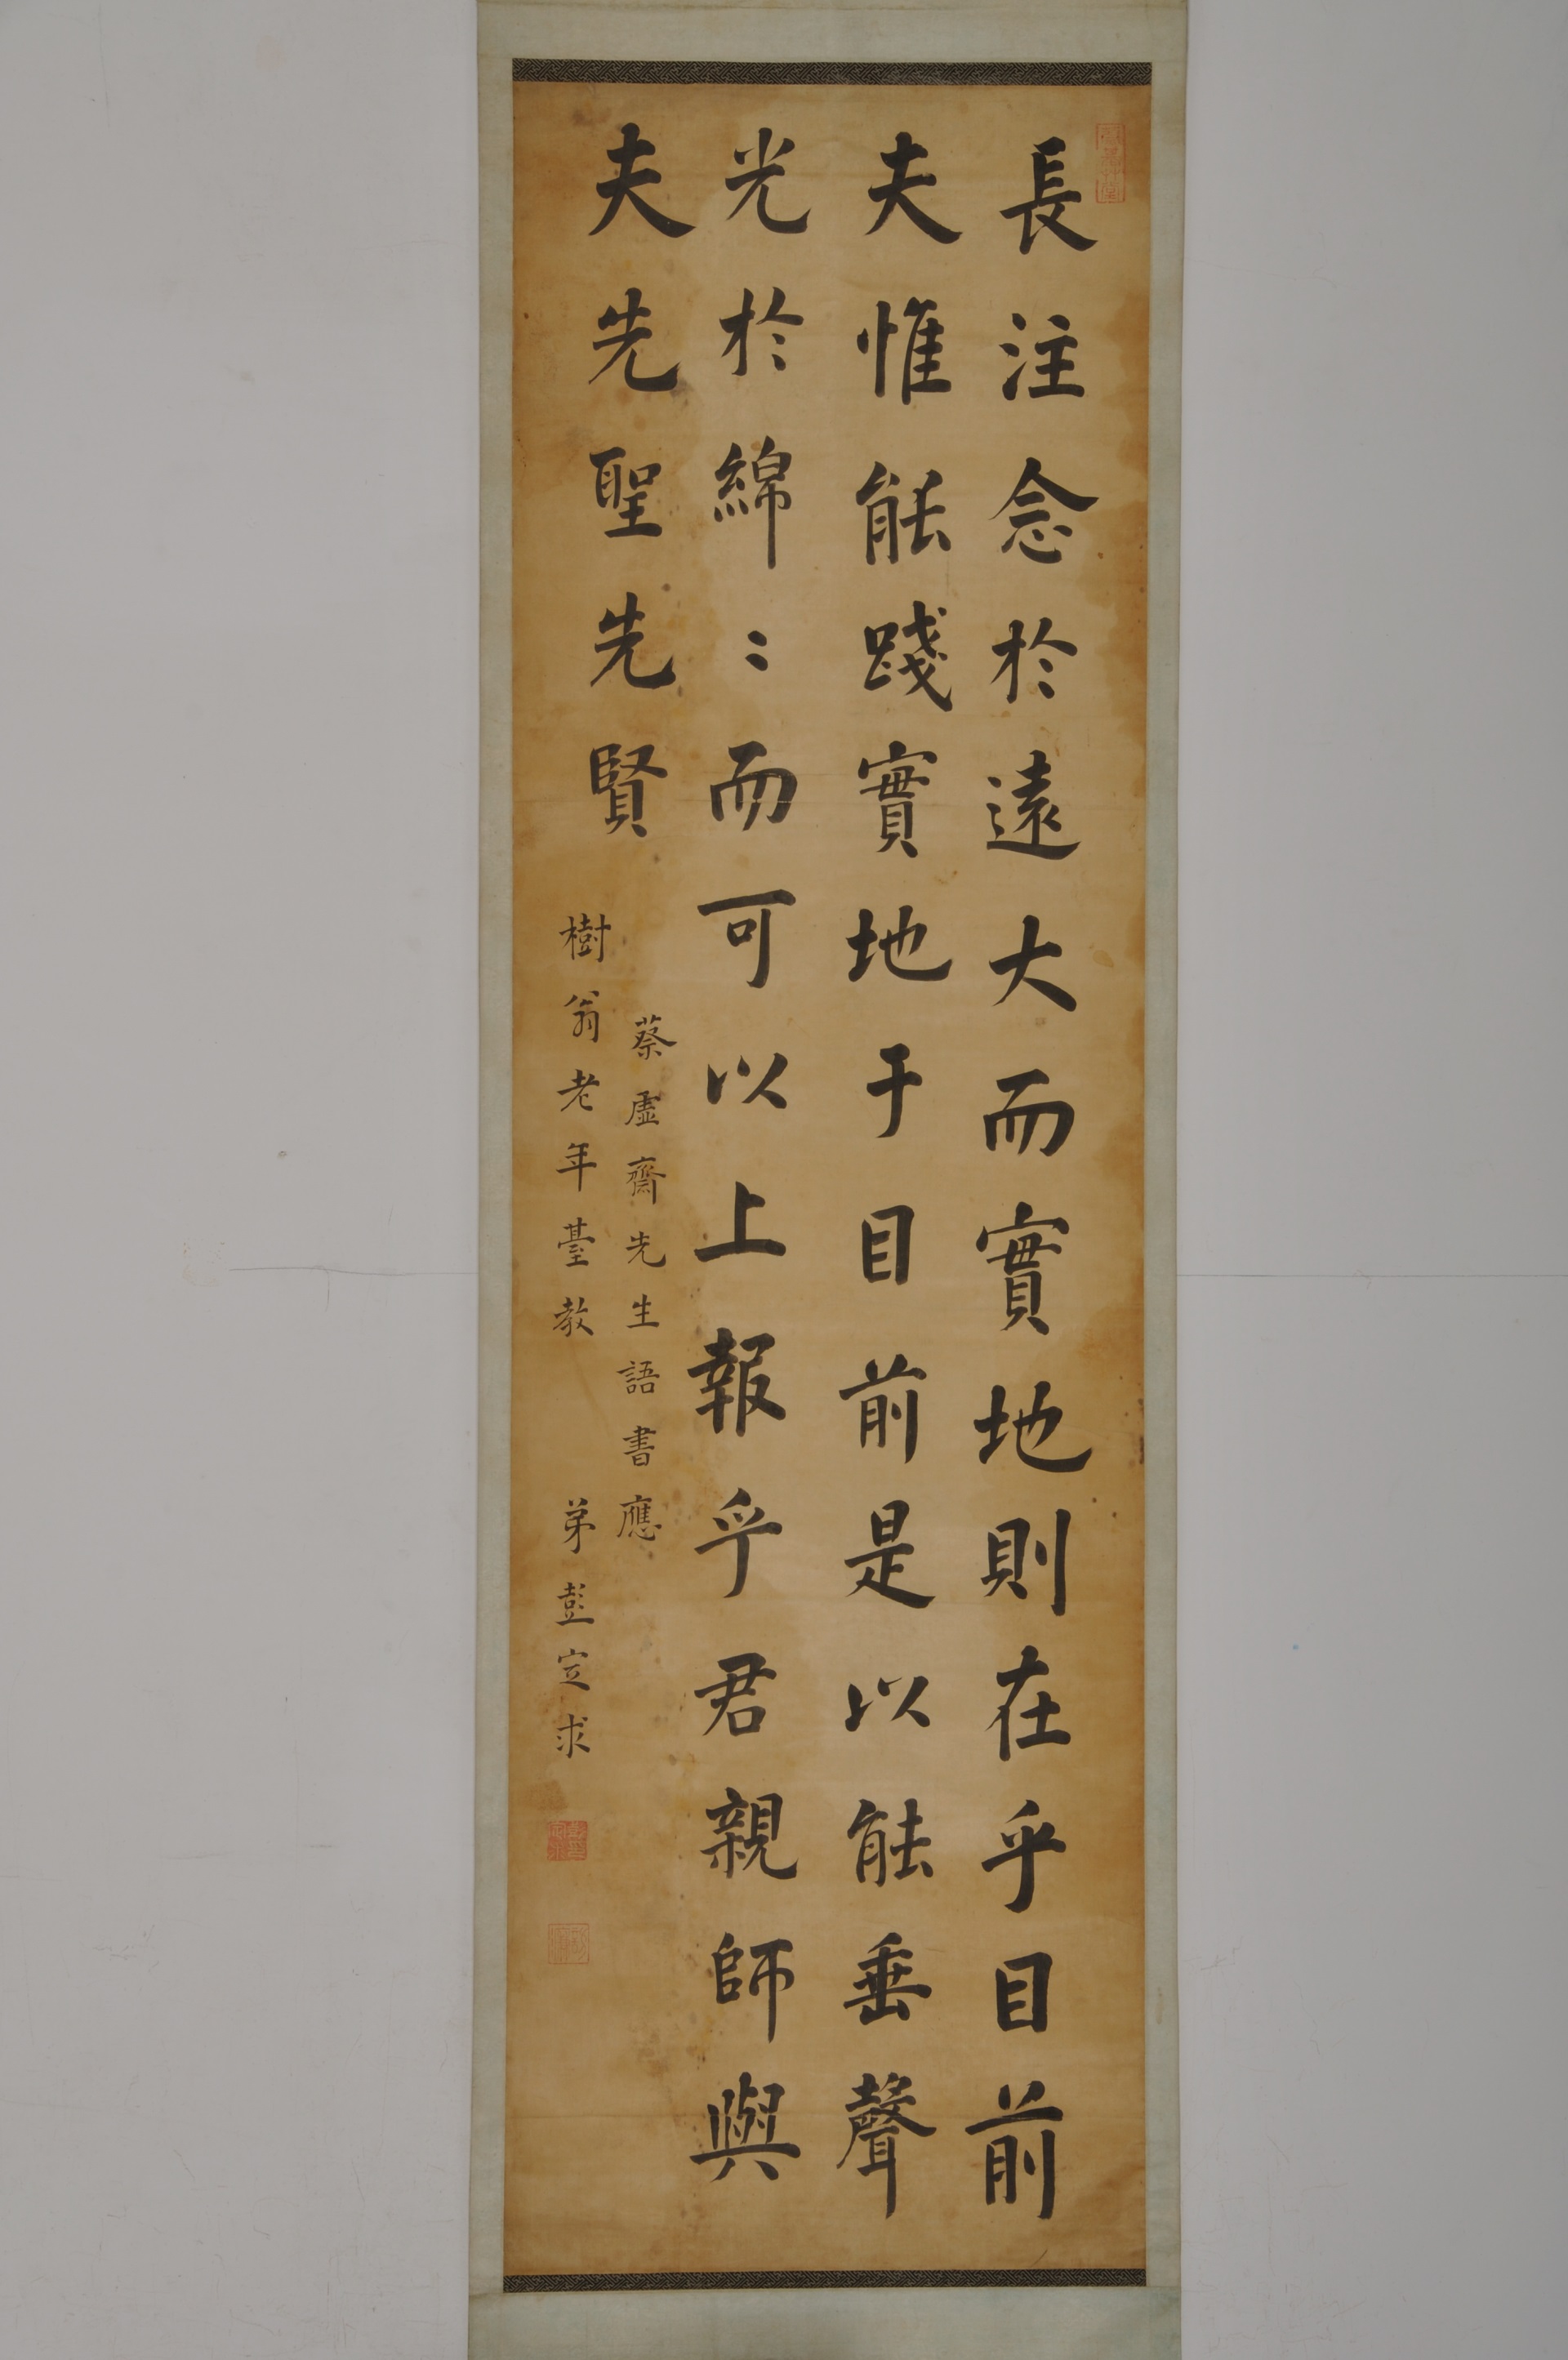 長注念於遠大而實地則在乎目前
夫惟能踐實地于目前是以能垂聲
光於綿〻而可以上報乎君親師與
夫先聖先賢
蔡虛齋先生語書應
樹翁老年臺教
弟彭定求